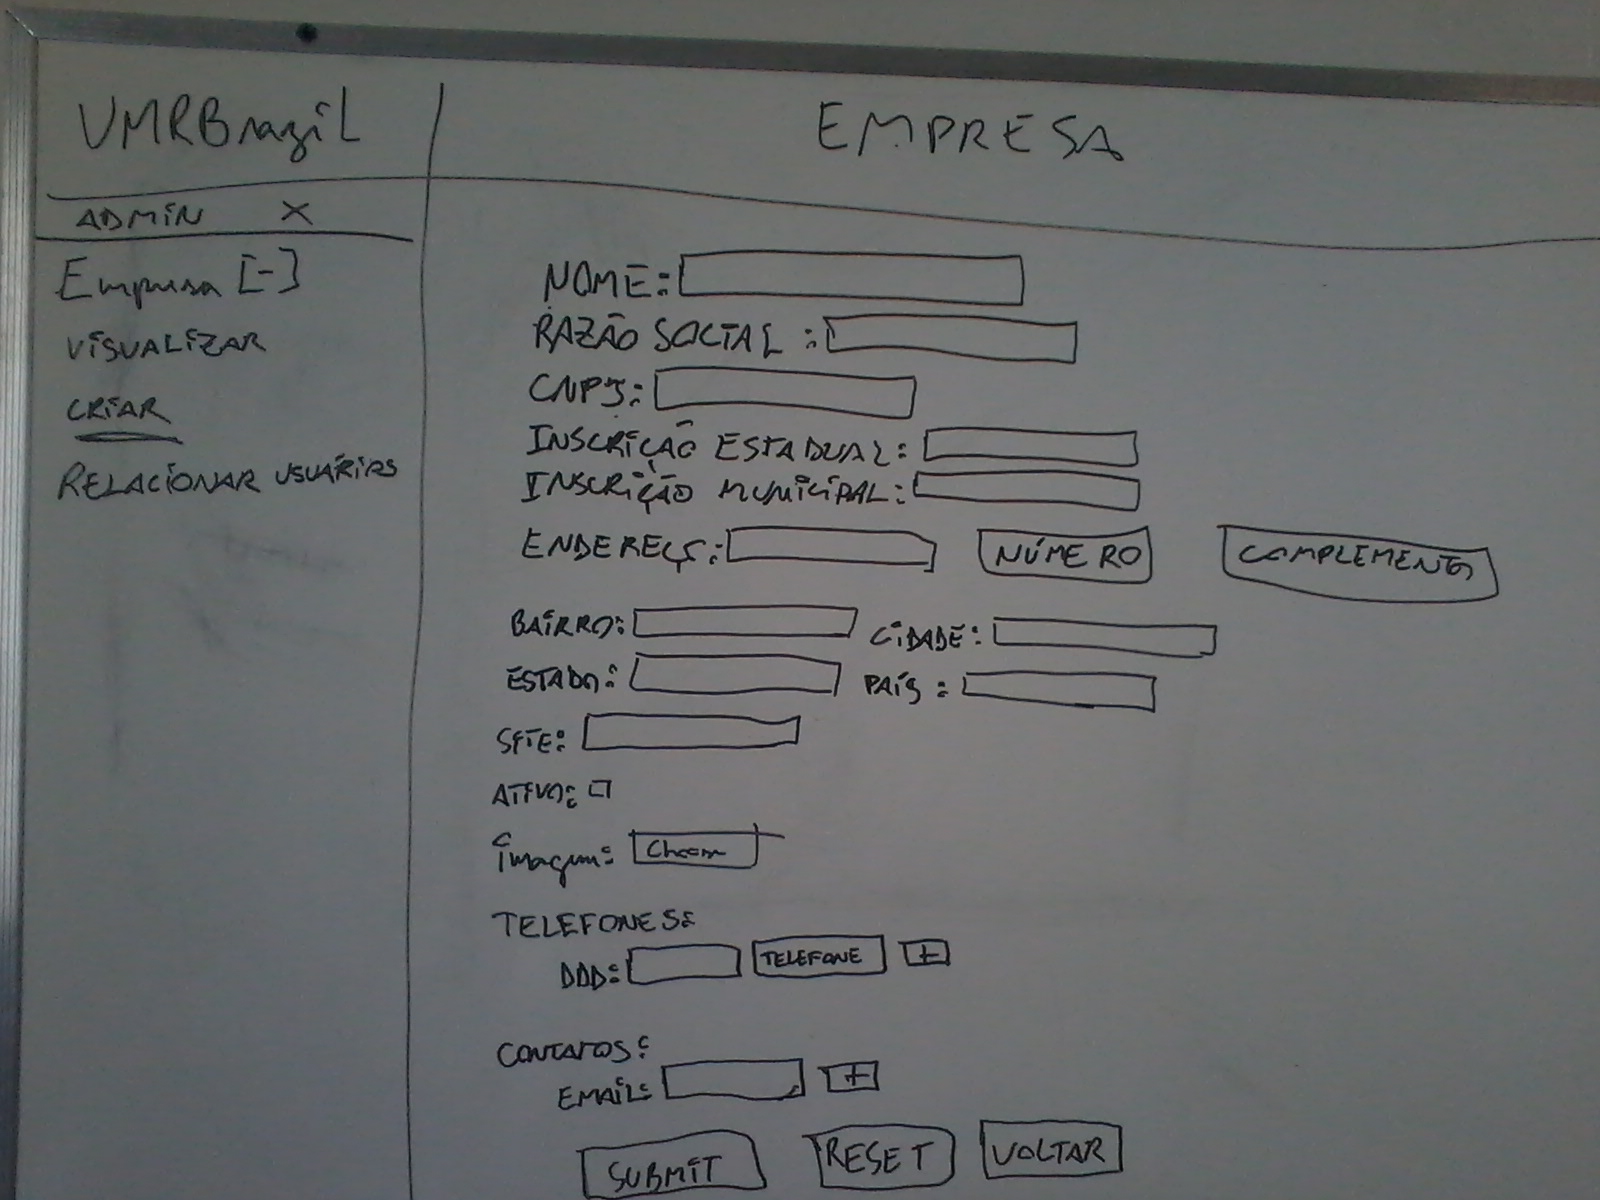 VMRBrazil
EMPRESA
ADMIN X
Empresa [-]
VISUALIZAR
CRIAR
RELACIONAR USUÁRIOS
NOME:
RAZÃO SOCIAL :
CNPJ:
INSCRIÇÃO ESTADUAL:
INSCRIÇÃO MUNICIPAL:
ENDEREÇO: NÚMERO COMPLEMENTO
BAIRRO: CIDADE:
ESTADO: PAÍS :
SITE:
ATIVO:
imagem: Choose
TELEFONES:
DDD: TELEFONE +
CONTATOS:
EMAIL: +
SUBMIT RESET VOLTAR